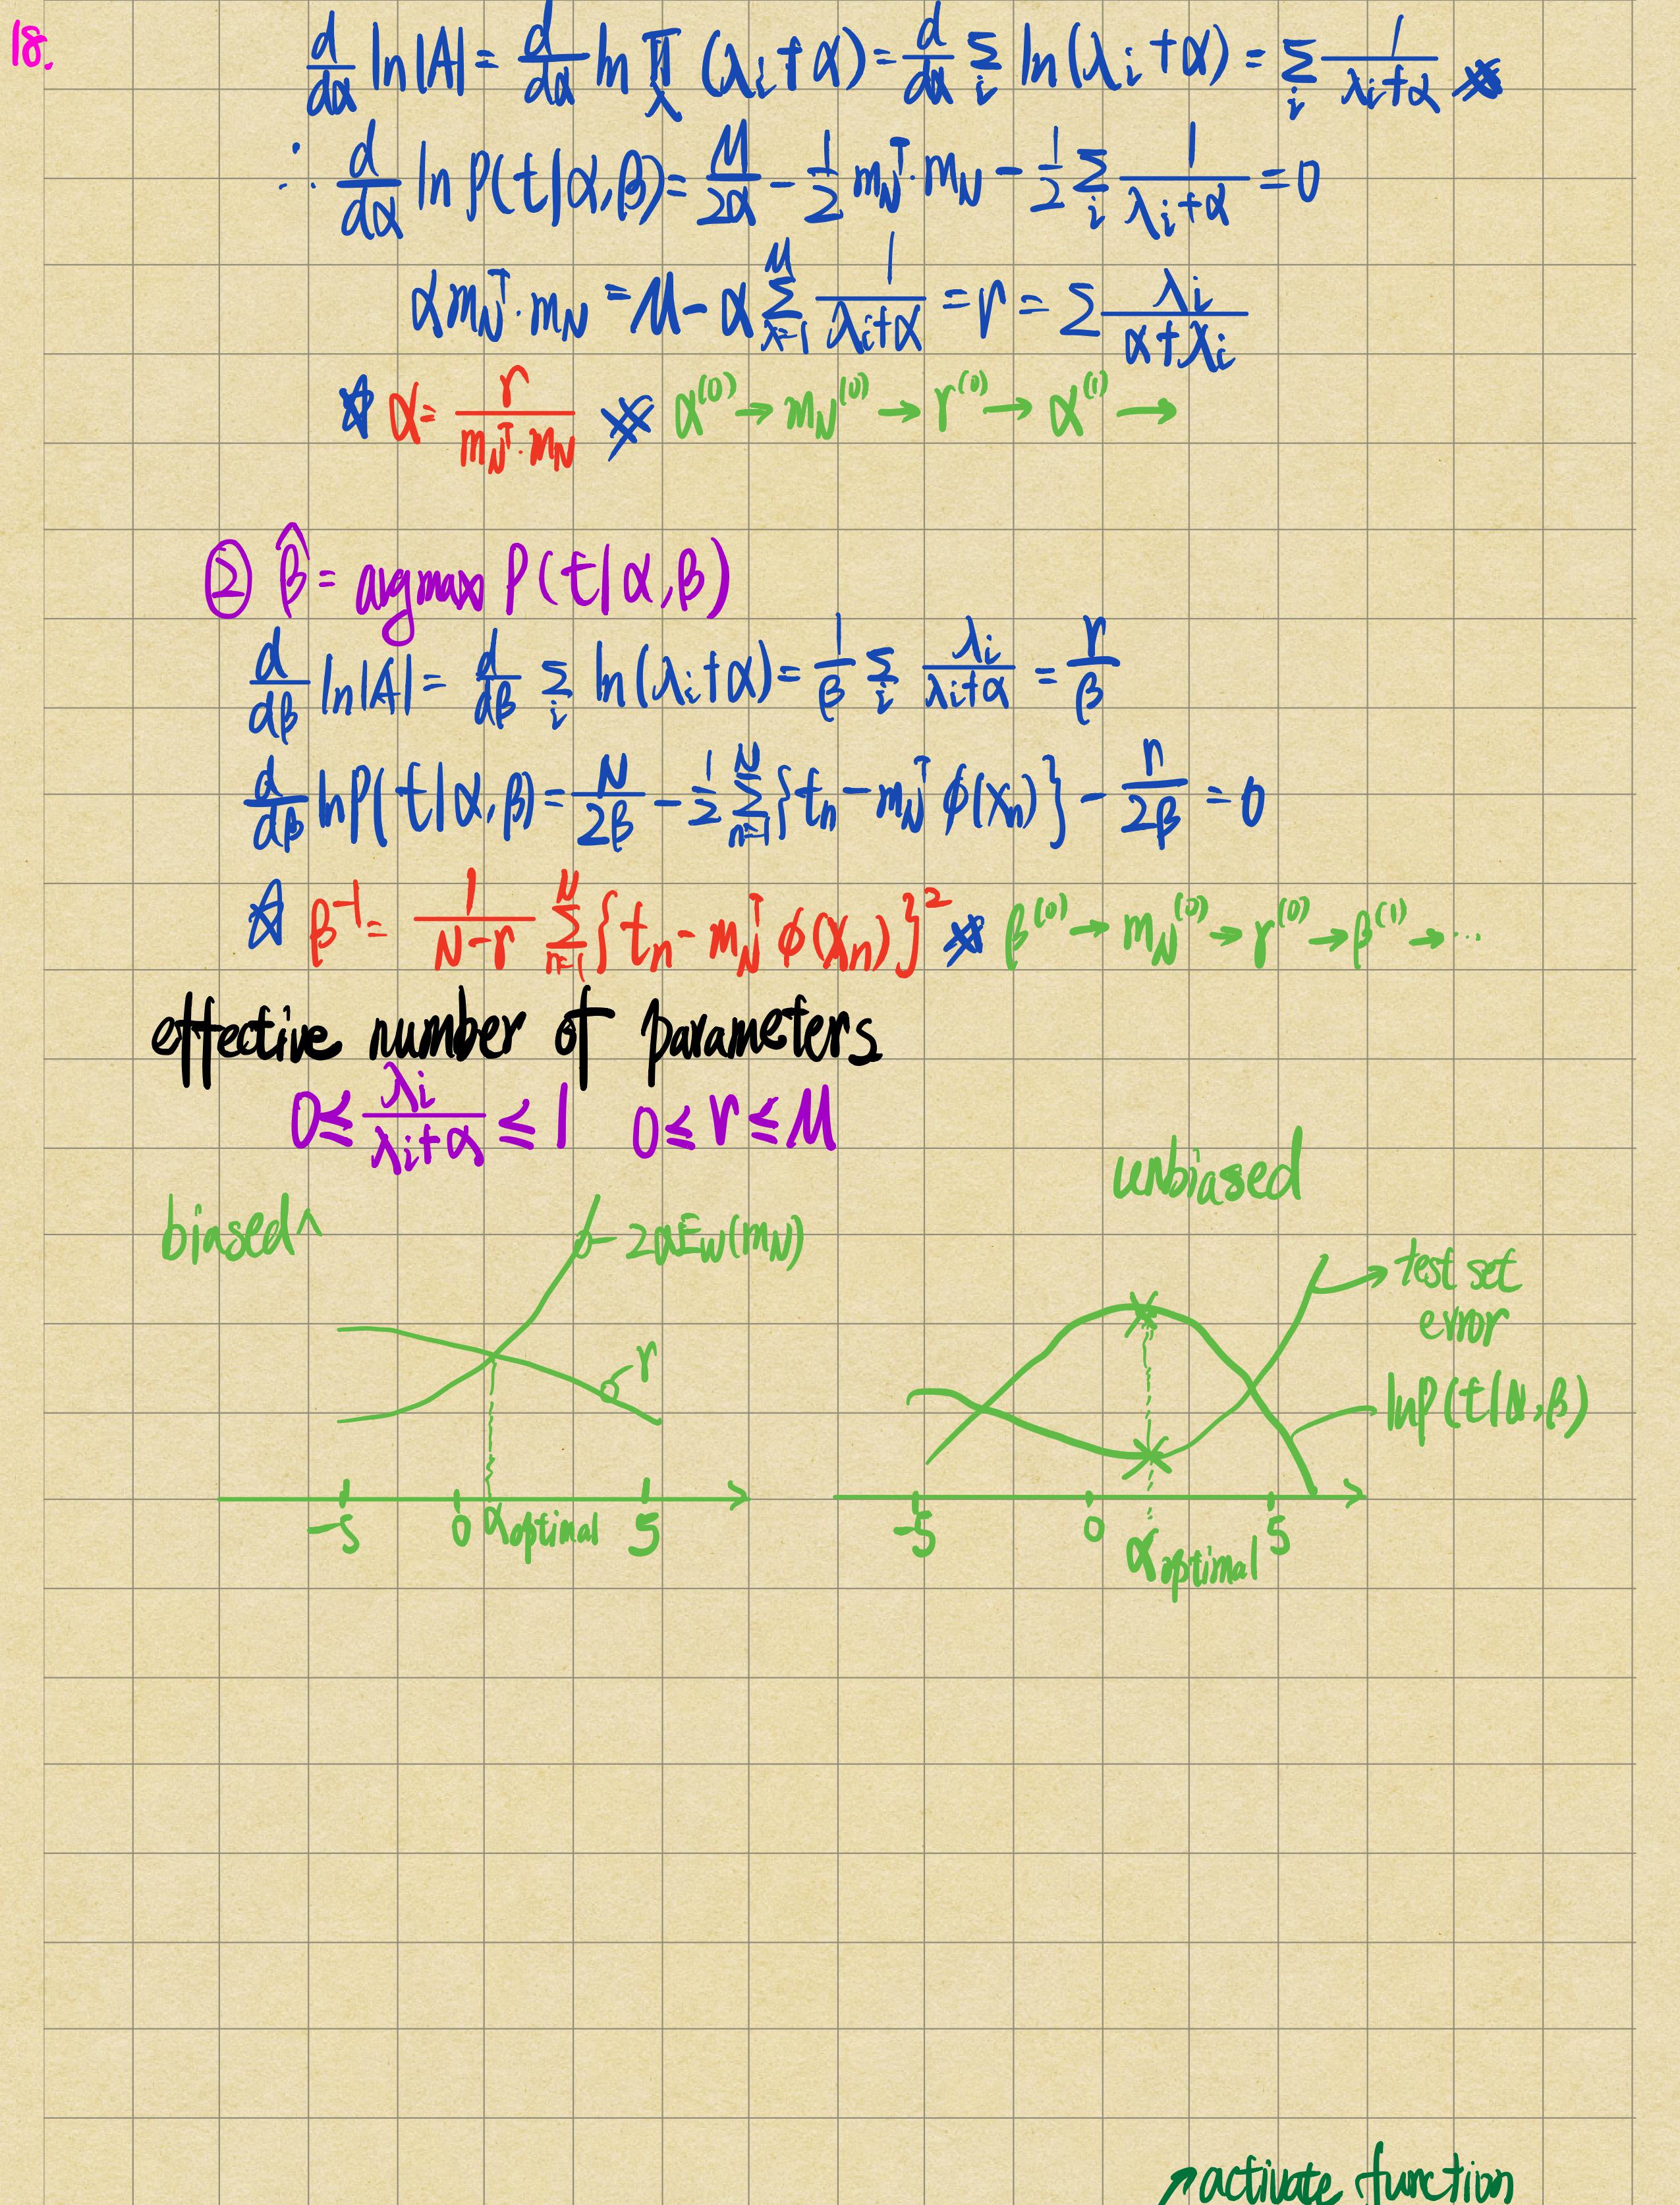 18.
d/dα ln|A| = d/dα ln ∏ᵢ (λᵢ+α) = d/dα Σᵢ ln(λᵢ+α) = Σᵢ 1/(λᵢ+α)
∴ d/dα ln P(t|α,β) = M/2α - 1/2 m_Nᵀ·m_N - 1/2 Σᵢ 1/(λᵢ+α) = 0
α m_Nᵀ·m_N = M - α Σ_{i=1}^{M} 1/(λᵢ+α) = r = Σ λᵢ/(α+λᵢ)
☆ α = r/(m_Nᵀ·m_N) α⁽⁰⁾ → m_N⁽⁰⁾ → r⁽⁰⁾ → α⁽¹⁾ →
② β̂ = argmax P(t|α,β)
d/dβ ln|A| = d/dβ Σᵢ ln(λᵢ+α) = 1/β Σᵢ λᵢ/(λᵢ+α) = r/β
d/dβ ln P(t|α,β) = N/2β - 1/2 Σ_{n=1}^{N} {t_n - m_Nᵀ φ(x_n)} - r/2β = 0
☆ β⁻¹ = 1/(N-r) Σ_{n=1}^{N} {t_n - m_Nᵀ φ(x_n)}² β⁽⁰⁾ → m_N⁽⁰⁾ → r⁽⁰⁾ → β⁽¹⁾ → ...
effective number of parameters
0 ≤ λᵢ/(λᵢ+α) ≤ 1 0 ≤ r ≤ M
unbiased
biased^
2αE_W(m_N)
test set
error
r
ln P(t|α,β)
-5 0 α optimal 5
-5 0 α optimal 5
↗ activate function